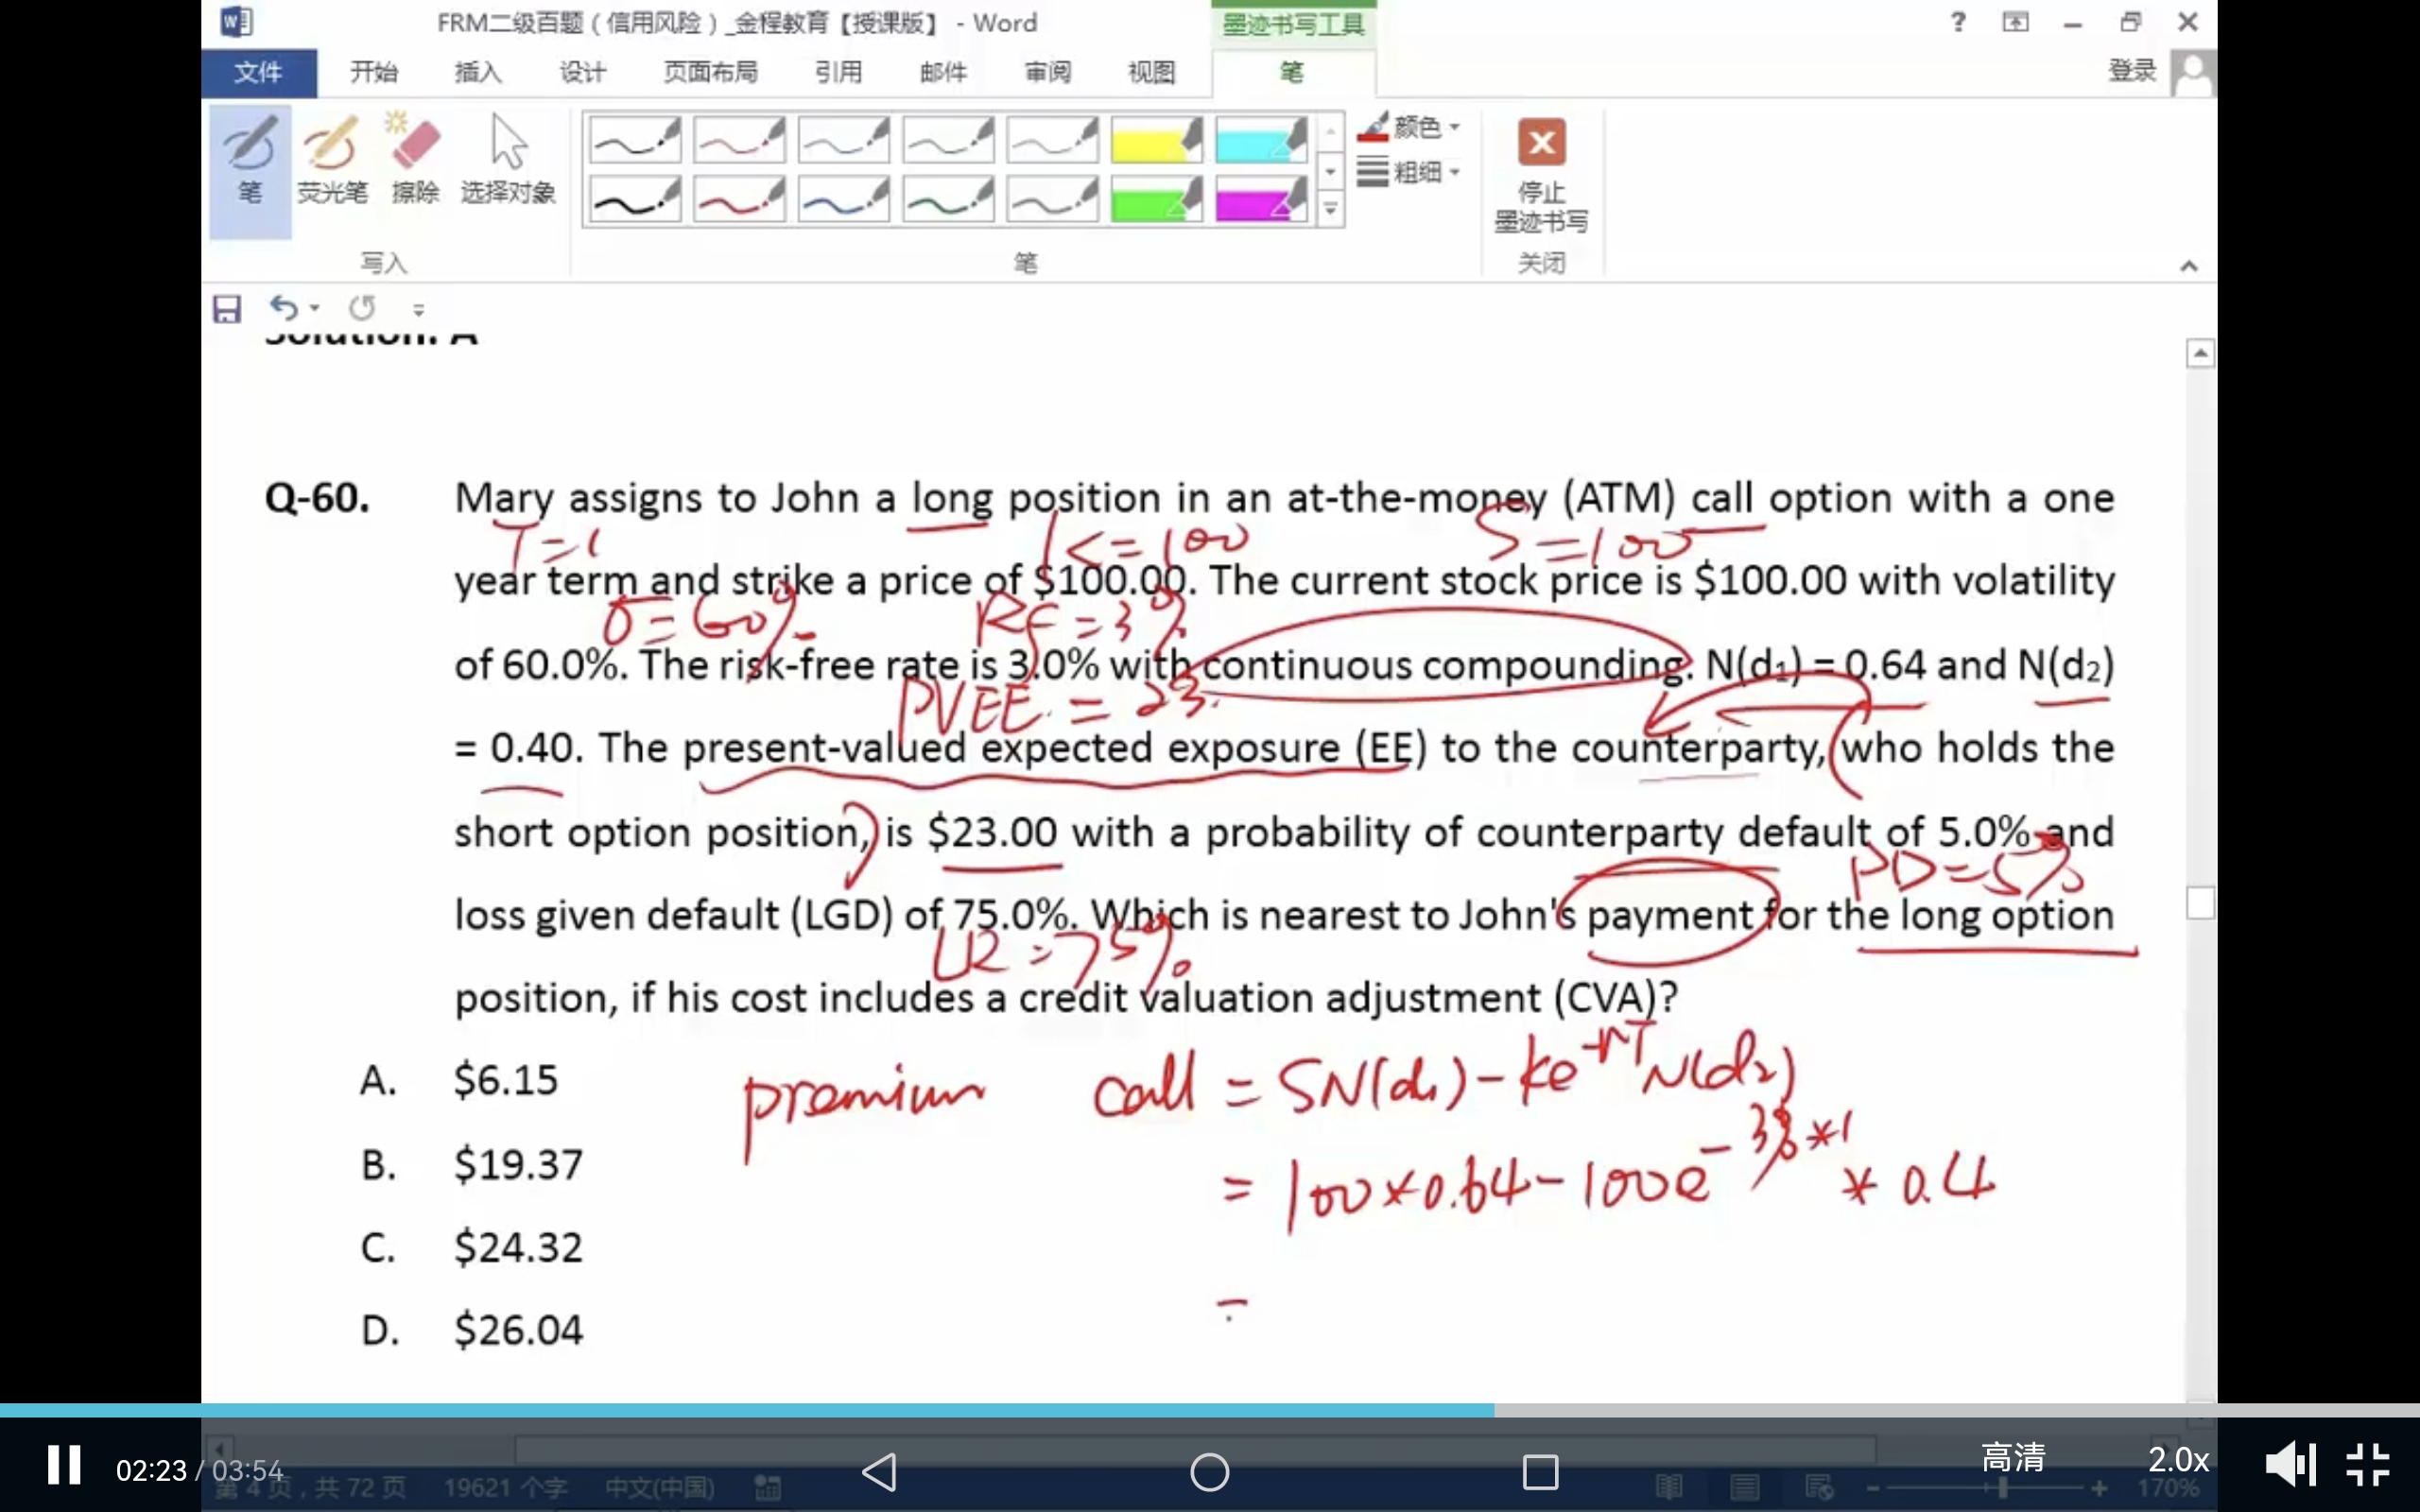 FRM二级百题（信用风险）_金程教育【授课版】 - Word
墨迹书写工具
文件 开始 插入 设计 页面布局 引用 邮件 审阅 视图 笔 登录
笔 荧光笔 擦除 选择对象
颜色
粗细
停止
墨迹书写
写入 笔 关闭
Solution: A
Q-60. Mary assigns to John a long position in an at-the-money (ATM) call option with a one
T=1 K=100 S=100
year term and strike a price of $100.00. The current stock price is $100.00 with volatility
σ=60% Rf=3%
of 60.0%. The risk-free rate is 3.0% with continuous compounding. N(d1) = 0.64 and N(d2)
PVEE = 23.
= 0.40. The present-valued expected exposure (EE) to the counterparty, who holds the
short option position, is $23.00 with a probability of counterparty default of 5.0% and
PD=5%
loss given default (LGD) of 75.0%. Which is nearest to John's payment for the long option
LR=75%
position, if his cost includes a credit valuation adjustment (CVA)?
A. $6.15
premium call = SN(d1)-Ke-rTN(d2)
B. $19.37
= 100*0.64-100e-3%*1*0.4
C. $24.32
=
D. $26.04
02:23 / 03:54
高清 2.0x
第4页，共72页 19621个字 中文(中国) 170%